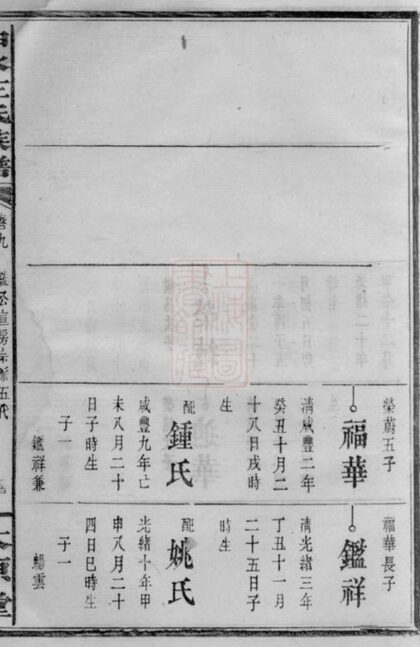 王氏族譜
卷九
榮蔚五子
福華
清咸豐二年
癸丑十月二
十八日戌時
生
配
鍾氏
咸豐九年亡
未八月二十
日子時生
子一
鑑祥兼
福華長子
鑑祥
清光緒三年
丁丑十一月
二十五日子
時生
配
姚氏
光緒十年甲
申八月二十
四日巳時生
子一
上海圖書館藏